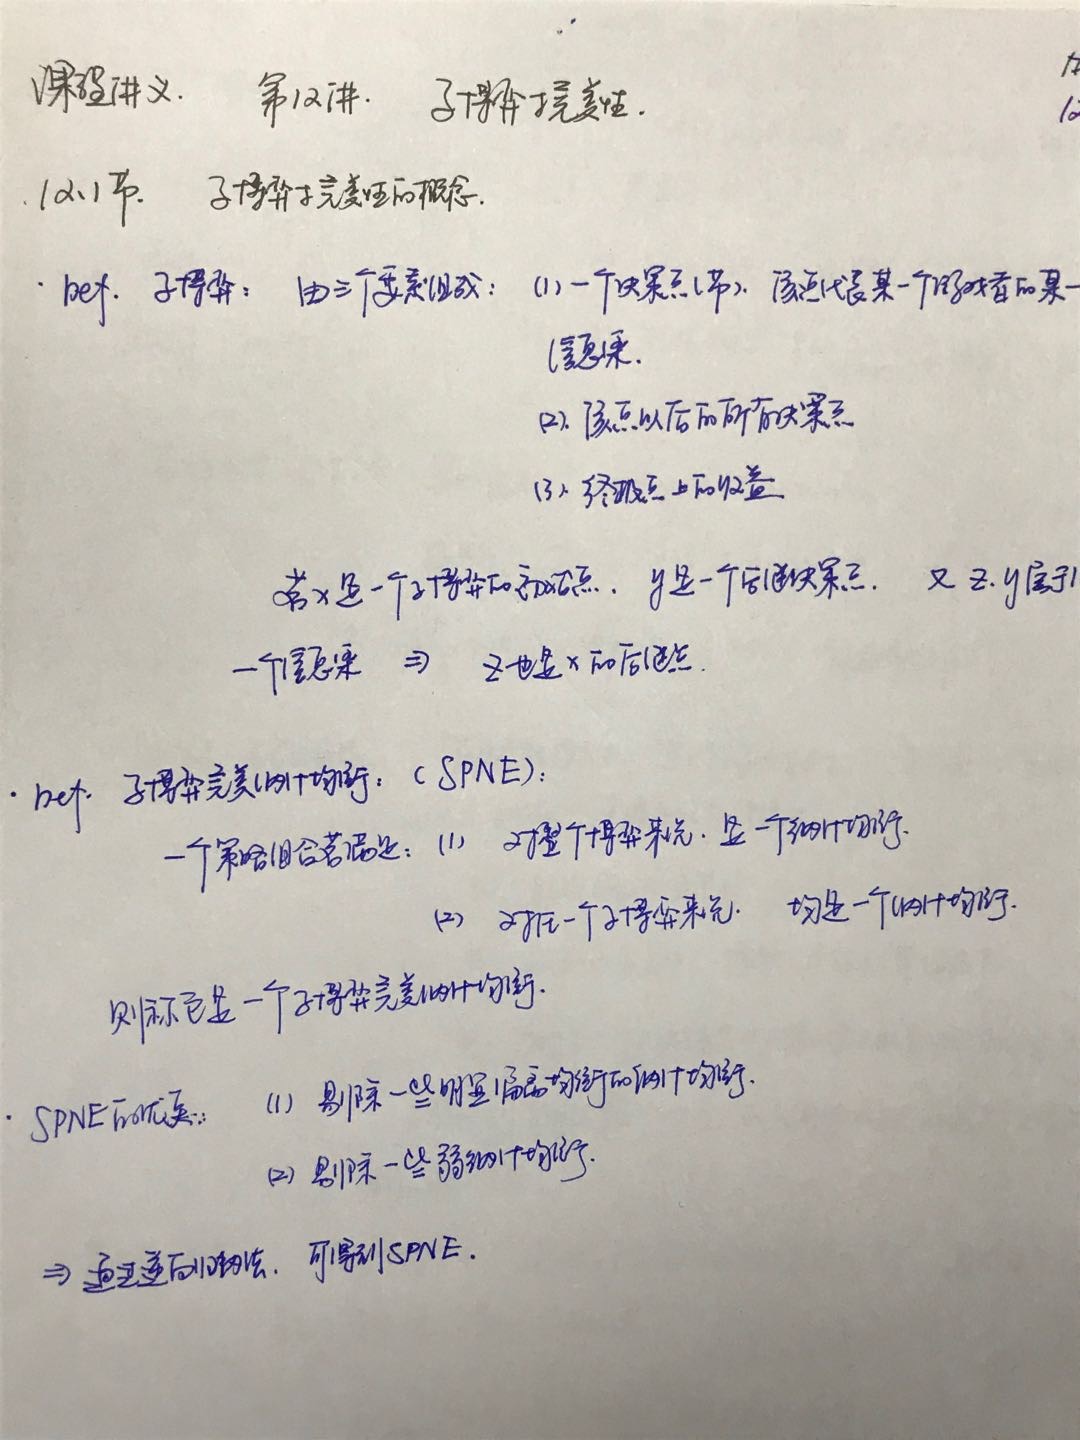 课程讲义. 第12讲. 子博弈完美性.
12.1节. 子博弈完美性的概念.
· Def. 子博弈: 由三个要素组成: (1) 一个决策点(节). 该点代表某一个游戏者的某一
信息集.
(2). 该点以后的所有决策点
(3). 终极点上的收益
若x是一个子博弈的初始点. y是一个后继决策点. 又 z.y属于
一个信息集 ⇒ z也是x的后继点.
· Def. 子博弈完美纳什均衡: (SPNE):
一个策略组合若满足: (1) 对整个博弈来说. 是一个纳什均衡.
(2) 对任一个子博弈来说. 均是一个纳什均衡.
则称它是一个子博弈完美纳什均衡.
· SPNE的优点: (1) 剔除一些明显偏离均衡的纳什均衡.
(2) 剔除一些弱纳什均衡.
⇒ 通过逆向归纳法. 可得到SPNE.